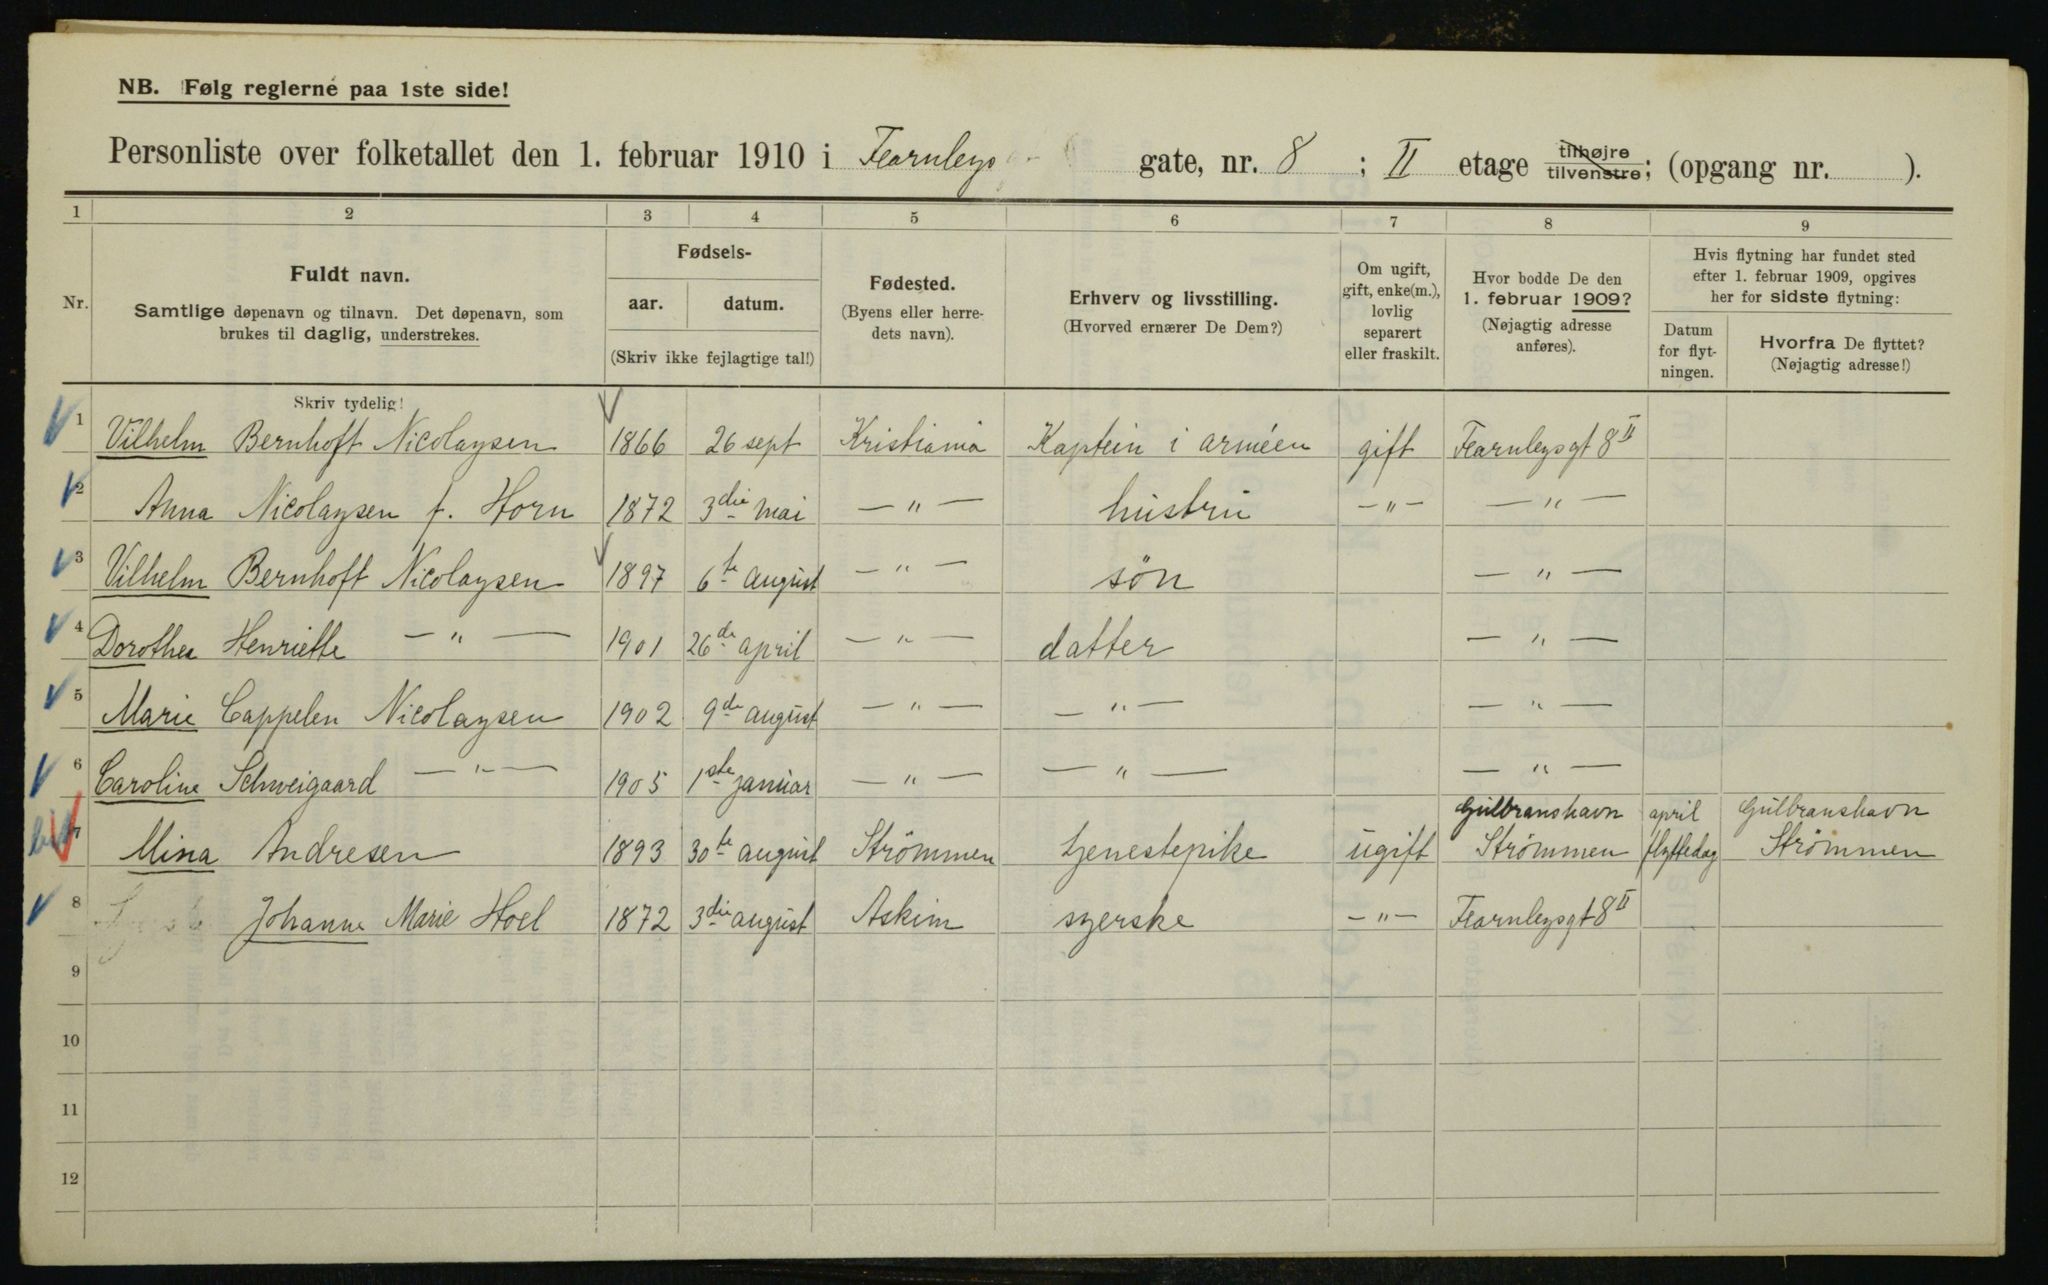 NB. Følg reglerne paa 1ste side!
Personliste over folketallet den 1. februar 1910 i Fearnleys gate, nr. 8 ; II etage tilhøjre tilvenstre; (opgang nr. ).
1 2 3 4 5 6 7 8 9
Nr.
Fuldt navn.
Samtlige døpenavn og tilnavn. Det døpenavn, som
brukes til daglig, understrekes.
Fødsels-
aar. datum.
(Skriv ikke fejlagtige tal!)
Fødested.
(Byens eller herre-
dets navn).
Erhverv og livsstilling.
(Hvorved ernærer De Dem?)
Om ugift,
gift, enke(m.),
lovlig
separert
eller fraskilt.
Hvor bodde De den
1. februar 1909?
(Nøjagtig adresse
anføres).
Hvis flytning har fundet sted
efter 1. februar 1909, opgives
her for sidste flytning:
Datum
for flyt-
ningen.
Hvorfra De flyttet?
(Nøjagtig adresse!)
Skriv tydelig!
1 Vilhelm Bernhoft Nicolaysen 1866 26 sept Kristiania Kaptein i arméen gift Fearnleysgt 8 II
2 Anna Nicolaysen f. Horn 1872 3die mai — " — hustru — " — — " —
3 Vilhelm Bernhoft Nicolaysen 1897 6te august — " — søn — " —
4 Dorothea Henriette — " — 1901 26de april — " — datter — " —
5 Marie Cappelen Nicolaysen 1902 9de august — " — — " — — " —
6 Caroline Schweigaard — " — 1905 1ste januar — " — — " — — " —
7 Mina Andresen 1893 30te august Strömmen tjenestepike ugift Gulbranshavn Strömmen april flyttedag Gulbranshavn Strömmen
8 Johanne Marie Hoel 1872 3die august Askim syerske — " — Fearnleysgt 8 II
9
10
11
12